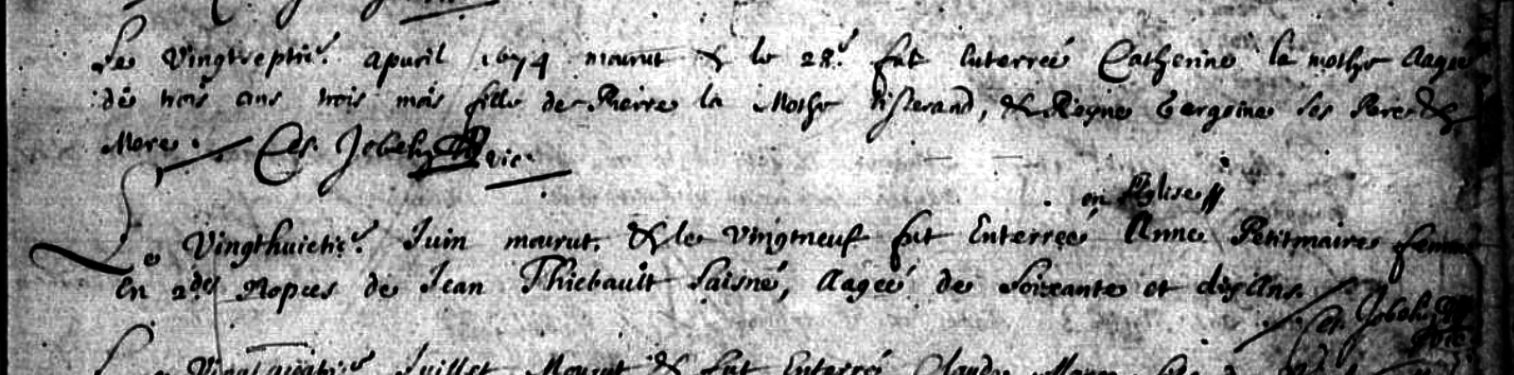 Le Vingtseptie. apuril 1674 mourut & le 28e. fut Enterreé Catherine la mothe Aageé
de trois ans trois mois fille de Pierre la Mothe Tisserand, & Reyne ses Pere &
Mere. vic.
en Eglise
Le Vingthuictie. Juin mourut, & le Vingtneuf fut Enterreé Anne Petitmaire femme
En 2des Nopces de Jean Thiebault Laisné, Aageé de Soixante et dix Ans.
Juillet Mourut & fut Enterré